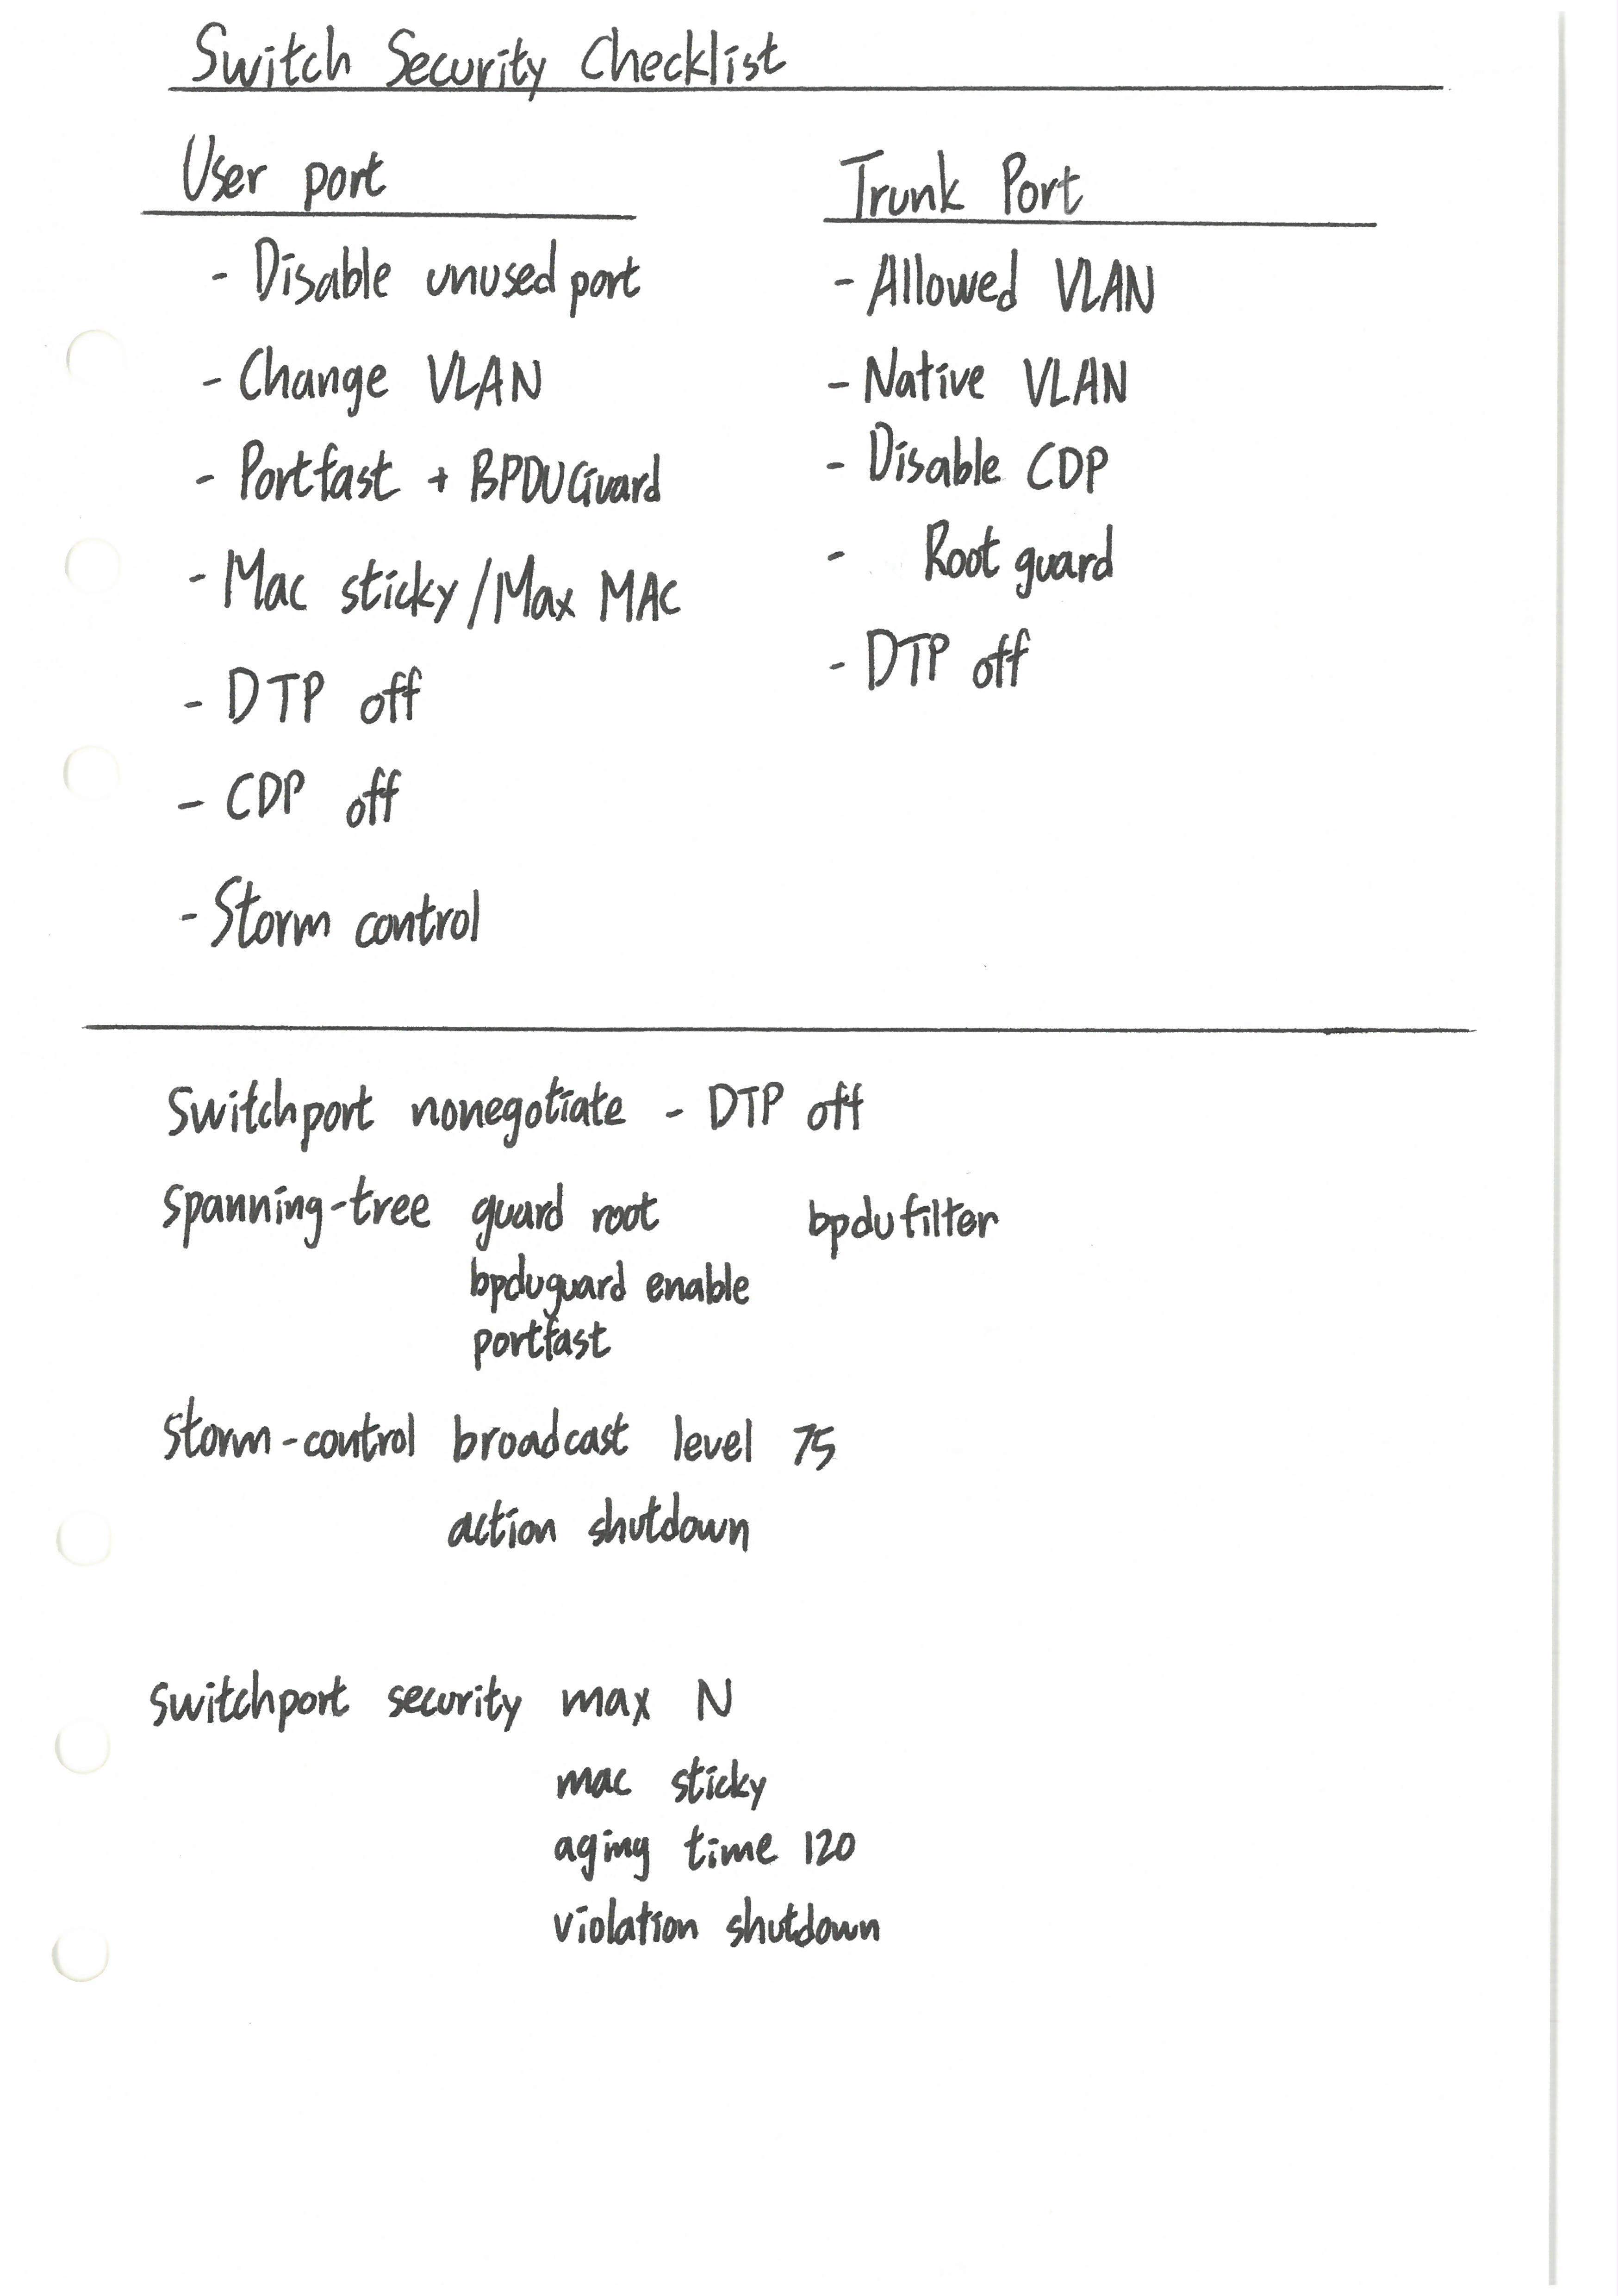 Switch Security Checklist
User port
- Disable unused port
- Change VLAN
- Portfast + BPDUGuard
- Mac sticky/Max MAC
- DTP off
- CDP off
- Storm control
Trunk Port
- Allowed VLAN
- Native VLAN
- Disable CDP
- Root guard
- DTP off
Switchport nonegotiate - DTP off
spanning-tree guard root bpdufilter
bpduguard enable
portfast
storm-control broadcast level 75
action shutdown
switchport security max N
mac sticky
aging time 120
violation shutdown